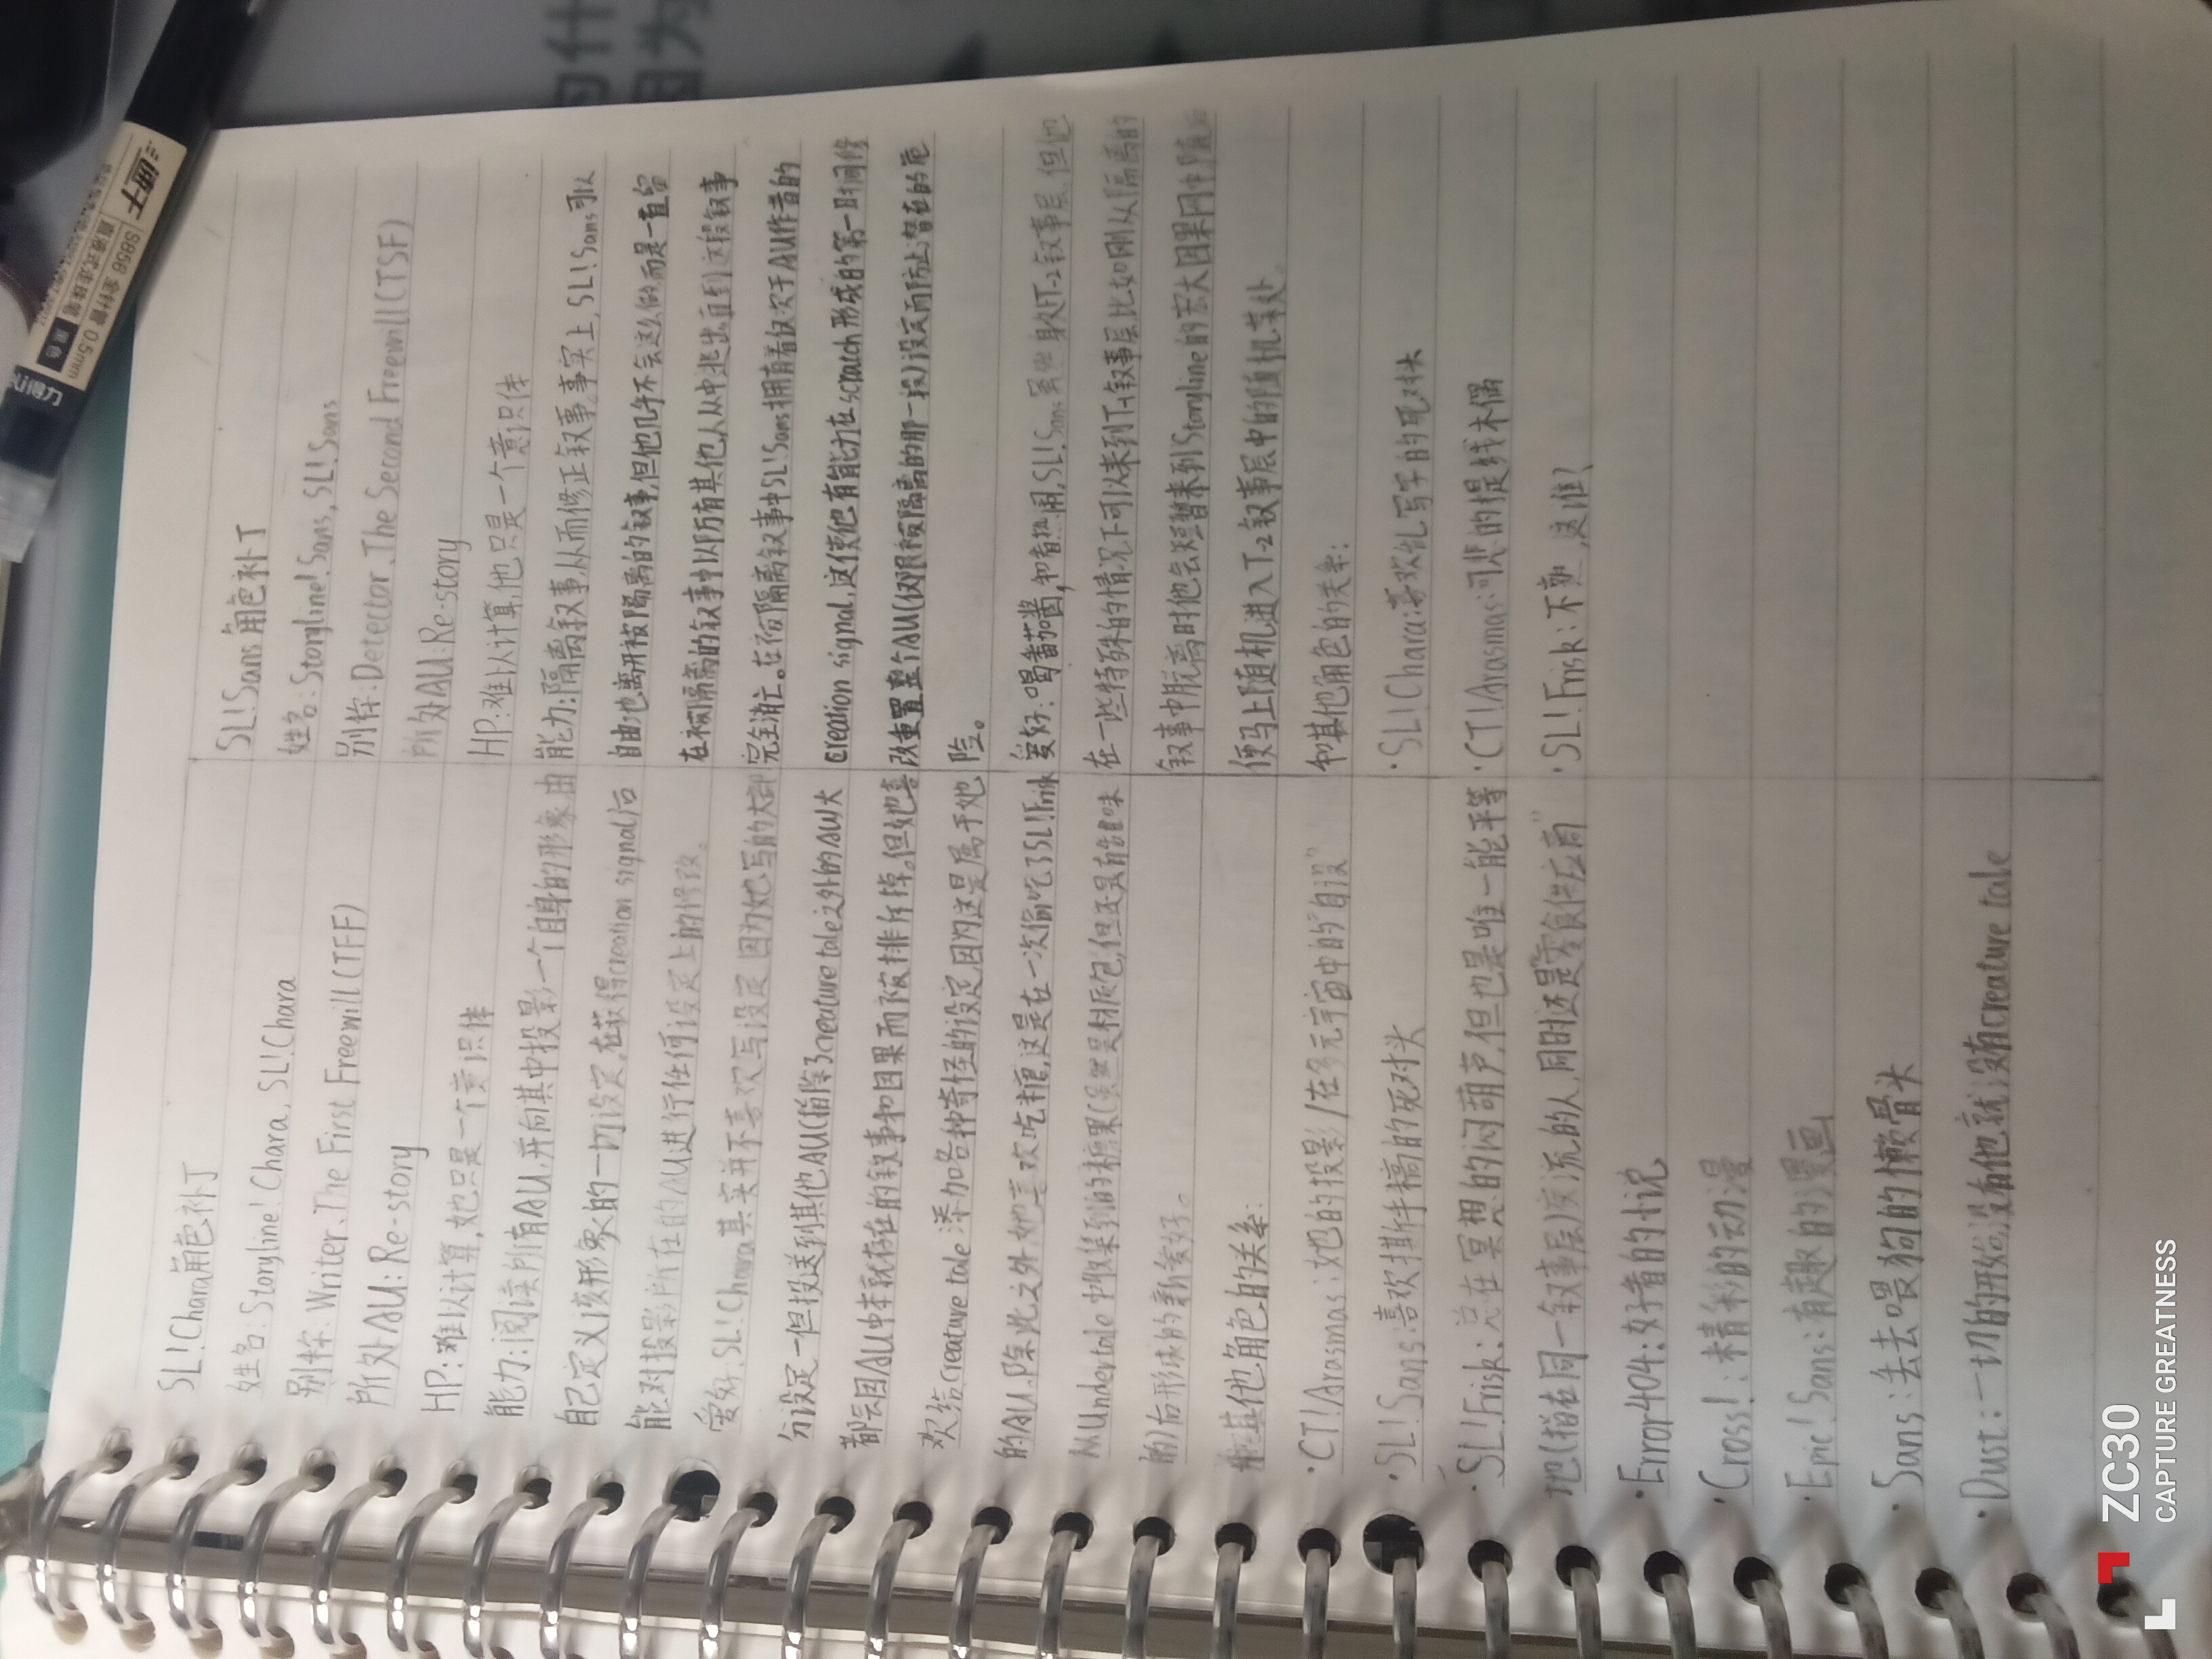 SL!Chara角色补丁
姓名:Storyline!Chara, SL!Chara
别称:Writer、The First Freewill(TFF)
所处AU:Re-story
HP:难以计算,她只是一个意识体
能力:阅读所有AU,并向其中投影一个自身的形象,由
自己定义该形象的一切设定,在获得creation signal后
能对投影所在的AU进行任何设定上的修改。
爱好:SL!Chara其实并不喜欢写设定,因为她写的大部
分设定一但投送到其他AU(指除了creature tale之外的AU)大
都会因AU中本就存在的叙事和因果而被排斥掉。但她喜
欢给creature tale添加各种奇怪的设定,因为这是属于她
的AU。除此之外,她喜欢吃糖,这是在一次偷吃了SL!Frisk
从Undertale中收集到的糖果(虽然是材质包,但还是有味
的)后形成的新爱好。
和其他角色的关系:
·CT!Arasmas:她的投影/在多元宇宙中的"自设"
·SL!Sans:喜欢撕手稿的死对头
·SL!Frisk:总在冥想的闷葫芦,但也是唯一能平等
地(指在同一叙事层)交流的人,同时还是"零食供应商"
·Error404:好看的小说
·Cross!:精彩的动漫
·Epic!Sans:有趣的漫画
·Sans:丢去喂狗的懒骨头
·Dust:一切的开始,没有他就没有creature tale
SL!Sans角色补丁
姓名:Storyline!Sans, SL!Sans
别称:Detector、The Second Freewill(TSF)
所处AU:Re-story
HP:难以计算,他只是一个意识体
能力:隔离叙事,从而修正叙事。事实上,SL!Sans可以
自由地离开被隔离的叙事,但他几乎不会这么做,而是一直留
在被隔离的叙事中以防有其他人从中逃出,直到这段叙事
完全消亡。在被隔离叙事中SL!Sans拥有着仅次于AU作者的
creation signal,这使他有能力在scratch形成的第一时间修
改重置整个AU(仅限被隔离的那一段)设定而防止潜在的危
险。
爱好:喝番茄酱,和看热闹,SL!Sans虽然身处T-2叙事层,但他
在一些特殊的情况下可以来到T-1叙事层,比如刚从隔离的
叙事中脱离时他会短暂来到Storyline的宏大因果网中,随后
便马上随机进入T-2叙事层中的随机某处。
和其他角色的关系:
·SL!Chara:喜欢乱写字的死对头
·CT!Arasmas:可悲的提线木偶
·SL!Frisk:不熟,这谁?
直液式走珠笔
S856 全针管 0.5mm
黑色
得力
ZC30
CAPTURE GREATNESS